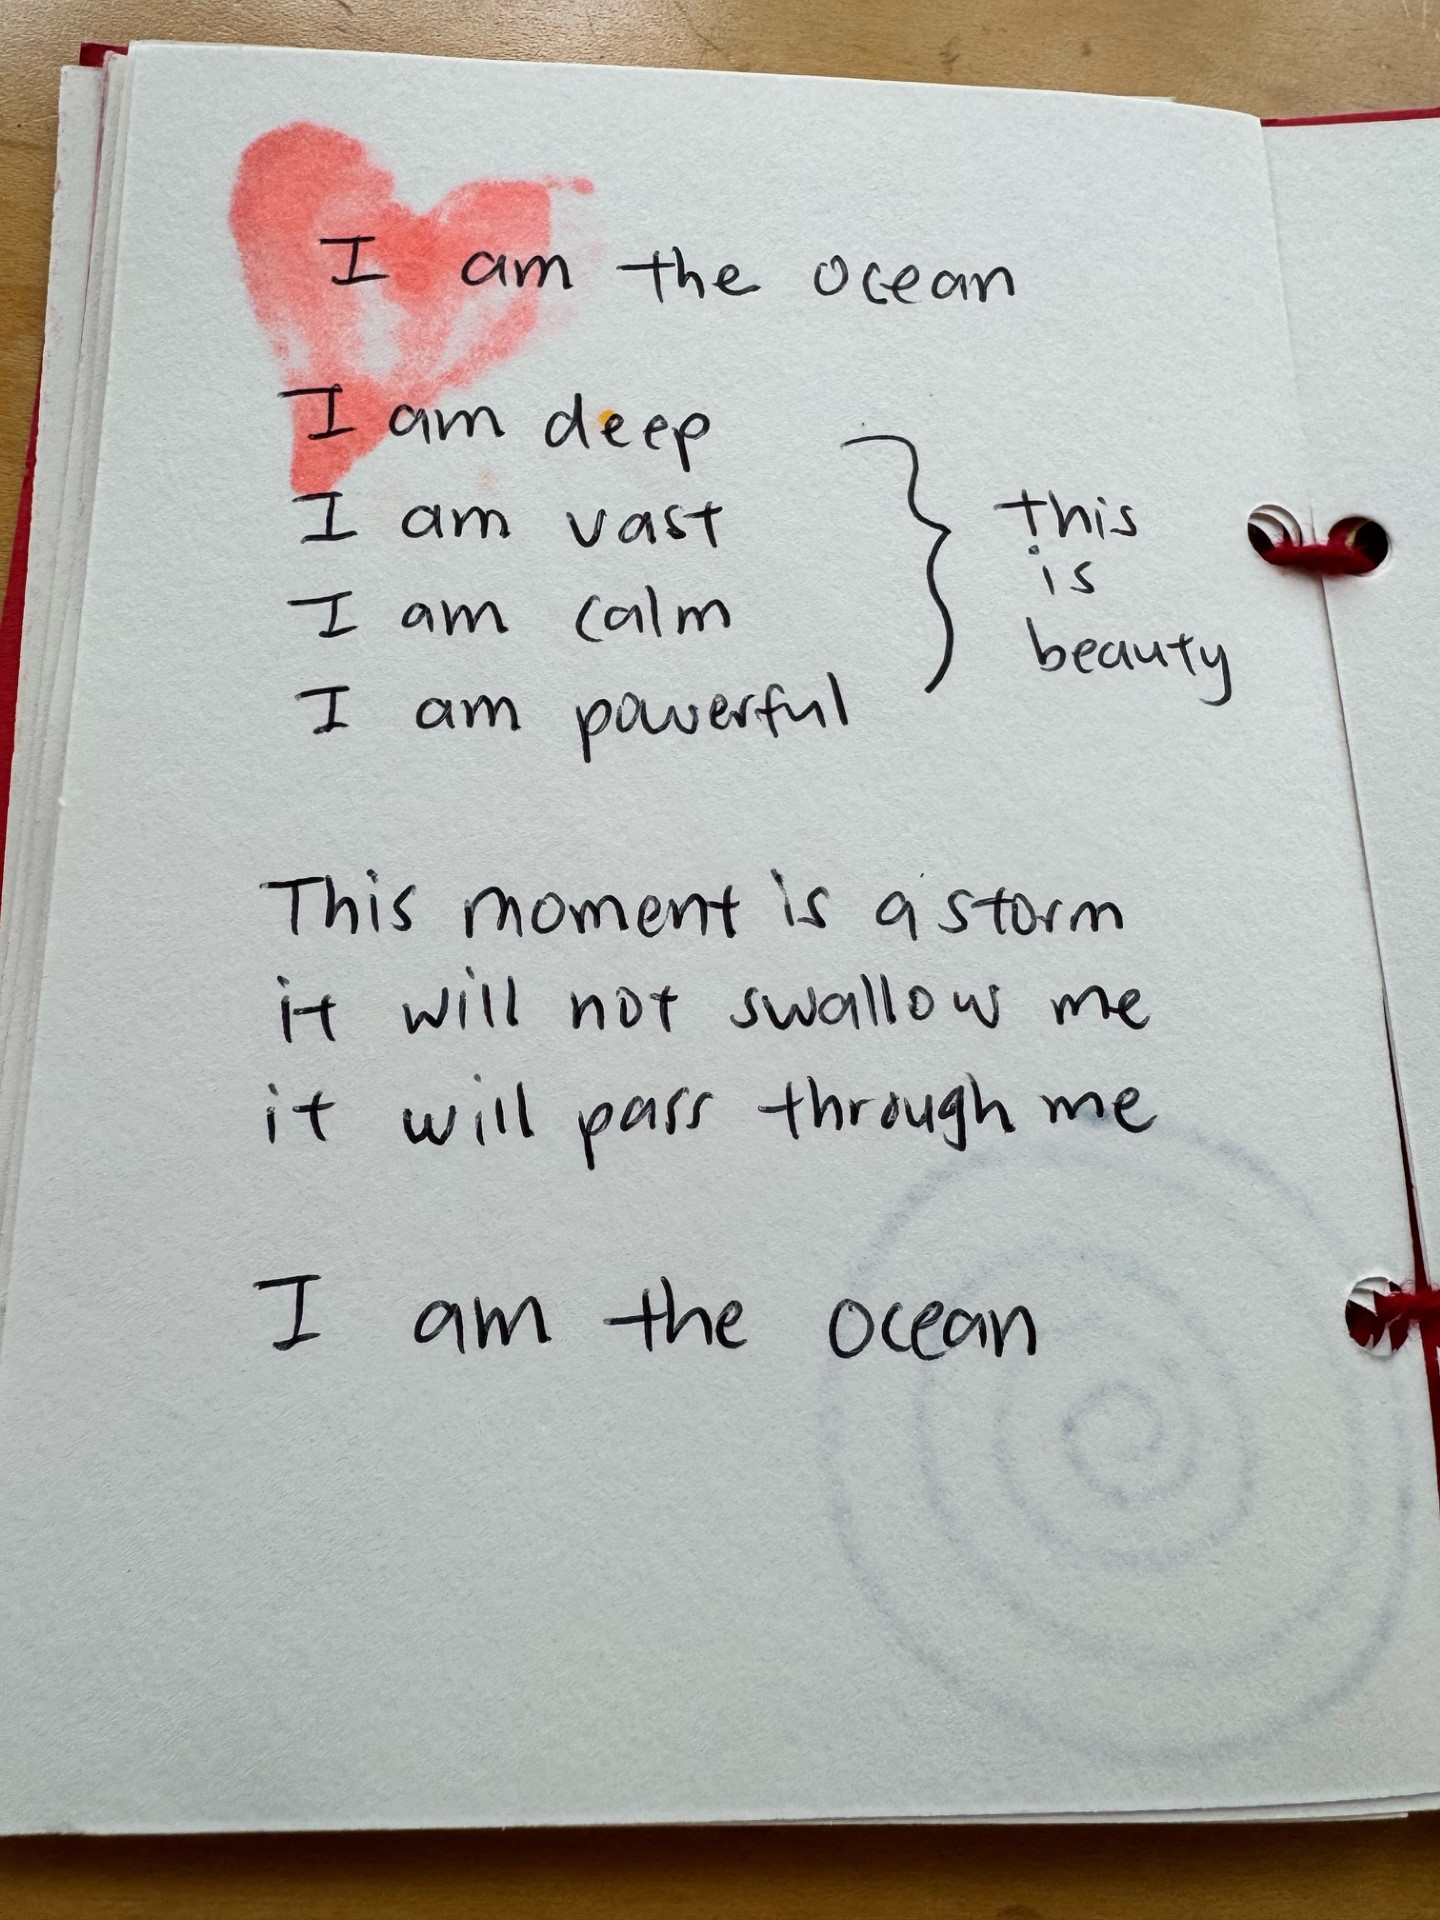 I am the ocean
I am deep
I am vast
I am calm
I am powerful
this
is
beauty
This moment is a storm
it will not swallow me
it will pass through me
I am the ocean